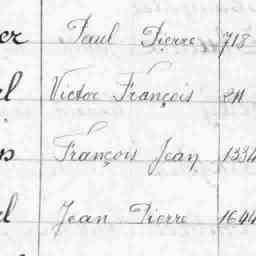 er Paul Pierre 718
el Victor François 211
François Jean 1334
el Jean Pierre 1644